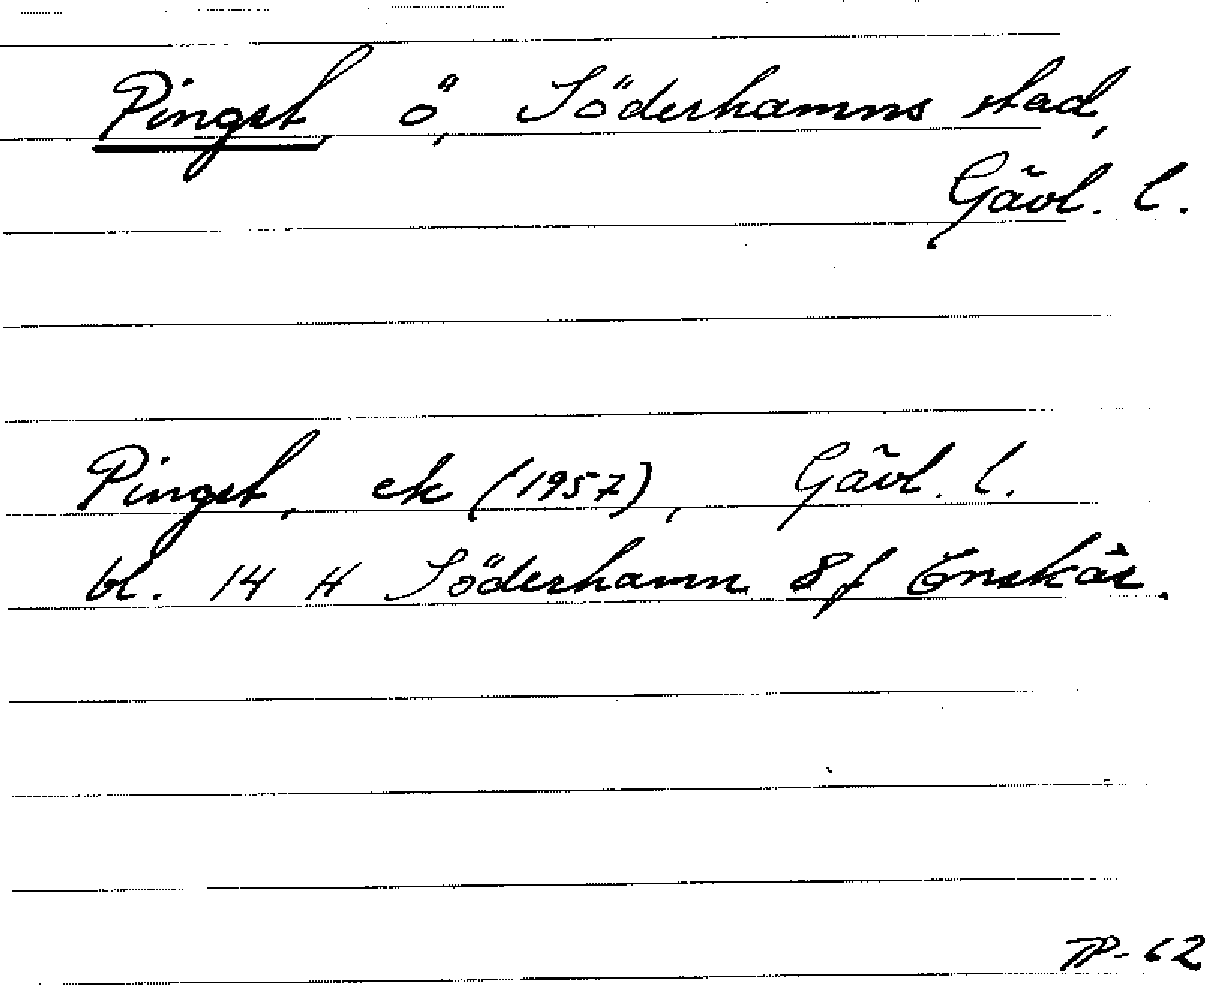 Pingst, ö, Söderhamns stad,
Gävl. l.
Pingst, ek (1957), Gävl. l.
bl. 14 H Söderhamn 8f Enskär.
TP-62